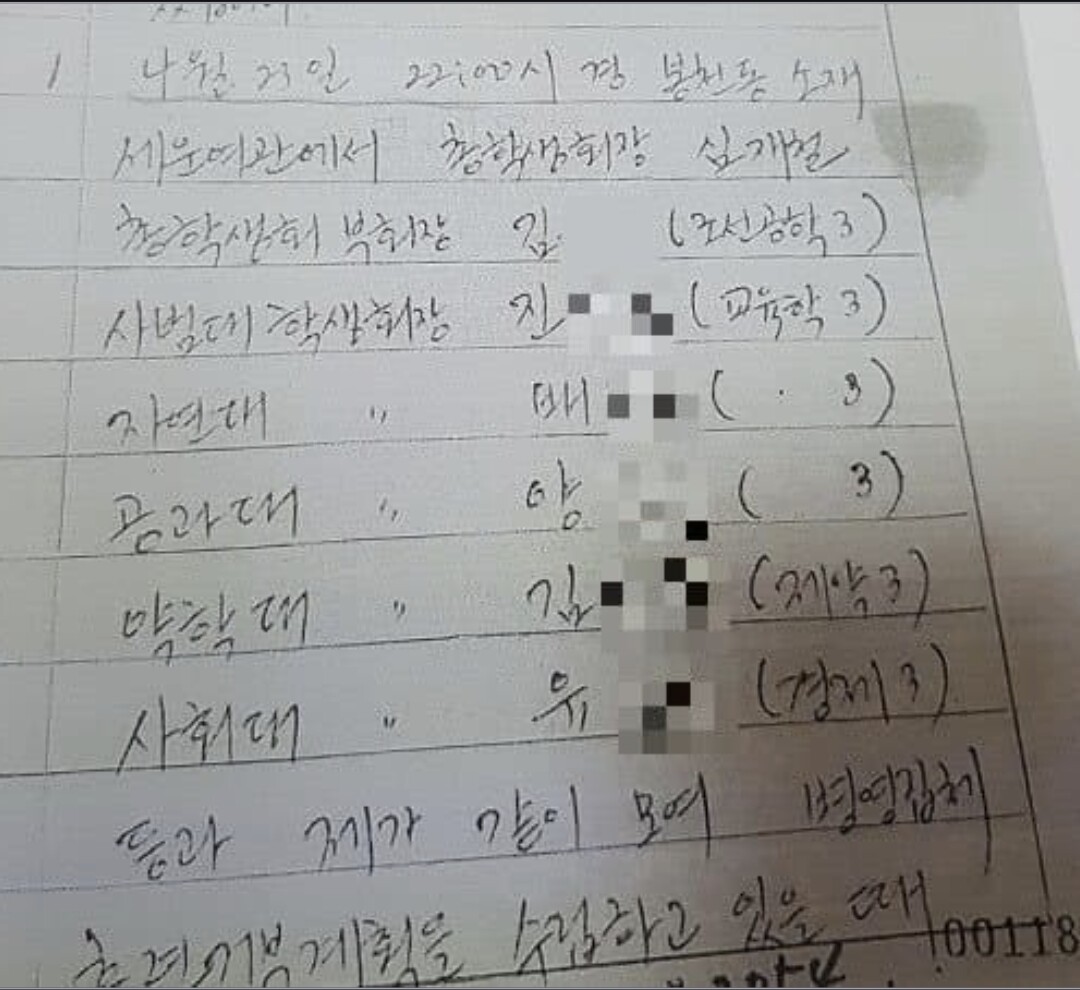 1 4월 23일 22:00시 경 봉천동 소재
세운여관에서 총학생회장 심재철
총학생회 부회장 김 (조선공학 3)
사범대 학생회장 진 (교육학 3)
자연대 〃 배 ( 3)
공과대 〃 양 ( 3)
약학대 〃 김 (제약 3)
사회대 〃 유 (경제 3)
등과 제가 같이 모여 병영집체
훈련거부계획을 수립하고 있을 때
00118